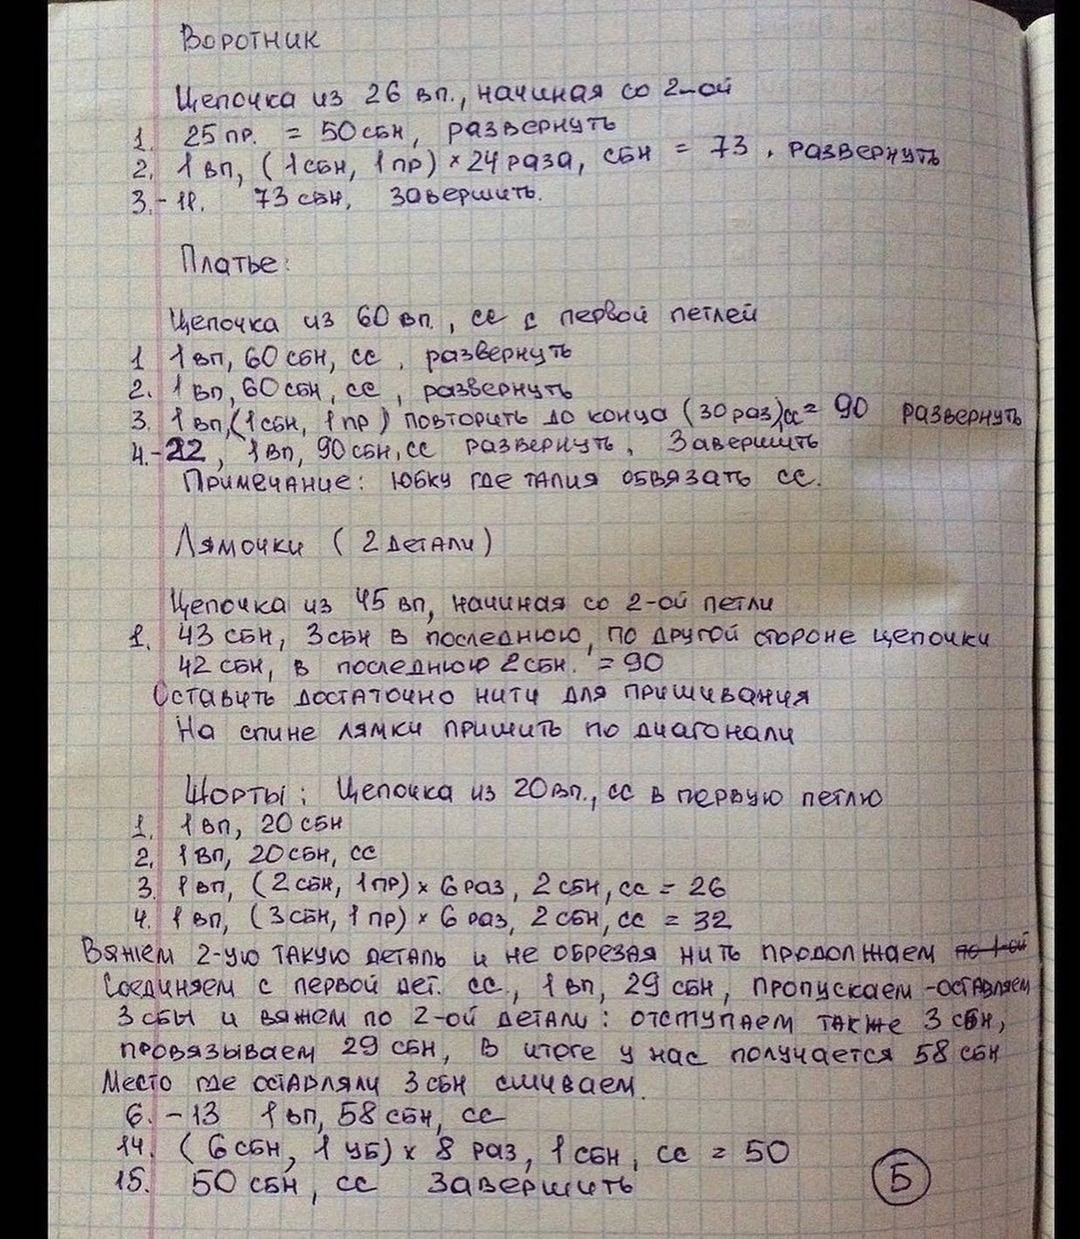 Воротник
Цепочка из 26 вп., начиная со 2-ой
1. 25 пр. = 50 сбн, развернуть
2. 1 вп, (1 сбн, 1 пр) × 24 раза, сбн = 73, развернуть
3.-11. 73 сбн, завершить.
Платье:
Цепочка из 60 вп., сс с первой петлей
1 1 вп, 60 сбн, сс, развернуть
2. 1 вп, 60 сбн, сс, развернуть
3. 1 вп, (1 сбн, 1 пр) повторить до конца (30 раз), сс = 90 развернуть
4.-22, 1 вп, 90 сбн, сс развернуть. Завершить
Примечание: юбку где талия обвязать сс.
Лямочки (2 детали)
Цепочка из 45 вп, начиная со 2-ой петли
1. 43 сбн, 3 сбн в последнюю, по другой стороне цепочки
42 сбн, в последнюю 2 сбн. = 90
Оставить достаточно нити для пришивания
На спине лямки пришить по диагонали
Шорты: Цепочка из 20 вп., сс в первую петлю
1. 1 вп, 20 сбн
2. 1 вп, 20 сбн, сс
3. 1 вп, (2 сбн, 1 пр) × 6 раз, 2 сбн, сс = 26
4. 1 вп, (3 сбн, 1 пр) × 6 раз, 2 сбн, сс = 32
Вяжем 2-ую такую деталь и не обрезая нить продолжаем по 1-ой
Соединяем с первой дет. сс, 1 вп, 29 сбн, пропускаем - оставляем
3 сбн и вяжем по 2-ой детали: отступаем также 3 сбн,
провязываем 29 сбн, в итоге у нас получается 58 сбн
Место где оставляли 3 сбн сшиваем.
6.-13 1 вп, 58 сбн, сс
14. (6 сбн, 1 уб) × 8 раз, 1 сбн, сс = 50
15. 50 сбн, сс завершить
Б